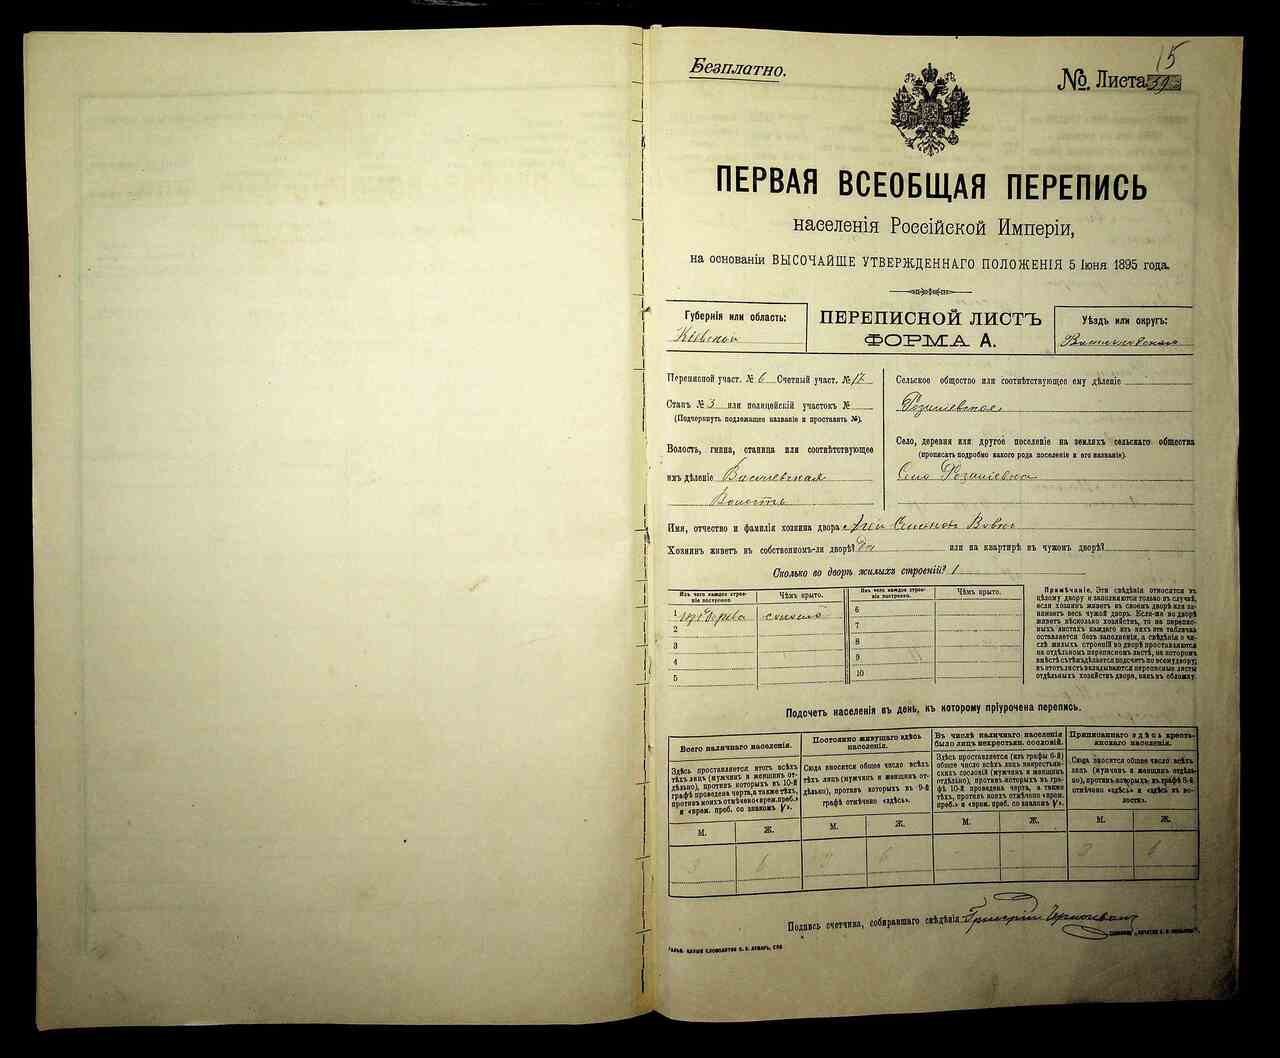 15
Безплатно.
№ Листа 39
ПЕРВАЯ ВСЕОБЩАЯ ПЕРЕПИСЬ
населенія Россійской Имперіи,
на основаніи ВЫСОЧАЙШЕ УТВЕРЖДЕННАГО ПОЛОЖЕНІЯ 5 Іюня 1895 года.
Губернія или область:
Кіевской
ПЕРЕПИСНОЙ ЛИСТЪ
ФОРМА А.
Уѣздъ или округъ:
Васильковскаго
Переписной участ. № 6 Счетный участ. № 17
Станъ № 3 или полицейскій участокъ №
(Подчеркнуть подлежащее названіе и проставить №).
Волость, гмина, станица или соотвѣтствующее
имъ дѣленіе
Волость
Сельское общество или соотвѣтствующее ему дѣленіе
Село, деревня или другое поселеніе на земляхъ сельскаго общества
(прописать подробно какого рода поселеніе и его названіе).
Село
Имя, отчество и фамилія хозяина двора
Хозяинъ живетъ въ собственномъ-ли дворѣ? Да или на квартирѣ въ чужомъ дворѣ?
Сколько во дворѣ жилыхъ строеній? 1
Изъ чего каждое строе-
ніе построено.
Чѣмъ крыто.
1 изъ дерева соломою
2
3
4
5
Изъ чего каждое строе-
ніе построено.
Чѣмъ крыто.
6
7
8
9
10
Примѣчаніе. Эти свѣдѣнія относятся къ
цѣлому двору и заполняются только въ случаѣ,
если хозяинъ живетъ въ своемъ дворѣ или за-
нимаетъ весь чужой дворъ. Если-же во дворѣ
живетъ нѣсколько хозяйствъ, то на перепис-
ныхъ листахъ каждаго изъ нихъ эта табличка
оставляется безъ заполненія, а свѣдѣнія о чи-
слѣ жилыхъ строеній во дворѣ проставляются
на отдѣльномъ переписномъ листѣ, на которомъ
вмѣстѣ съ тѣмъ дѣлается подсчетъ по всему двору;
въ этотъ листъ вкладываются переписные листы
отдѣльныхъ хозяйствъ двора, какъ въ обложку.
Подсчетъ населенія въ день, къ которому пріурочена перепись.
Всего наличнаго населенія.
Здѣсь проставляется итогъ всѣхъ
тѣхъ лицъ (мужчинъ и женщинъ от-
дѣльно), противъ которыхъ въ 10-й
графѣ проведена черта, а также тѣхъ,
противъ коихъ отмѣчено «врем. преб.»
и «врем. проб. со знакомъ V».
М. Ж.
3 6
Постоянно живущаго здѣсь
населенія.
Сюда вносится общее число всѣхъ
тѣхъ лицъ (мужчинъ и женщинъ от-
дѣльно), противъ которыхъ въ 9-й
графѣ отмѣчено «здѣсь».
М. Ж.
6
Въ числѣ наличнаго населенія
было лицъ некрестьян. сословій.
Здѣсь проставляется (изъ графы 6-й)
общее число всѣхъ лицъ некрестьян-
скихъ сословій (мужчинъ и женщинъ
отдѣльно), противъ которыхъ въ гра-
фѣ 10-й проведена черта, а также
тѣхъ, противъ коихъ отмѣчено «врем.
преб.» и «врем. преб. со знакомъ V».
М. Ж.
- -
Приписаннаго здѣсь кресть-
янскаго населенія.
Сюда вносится общее число всѣхъ
лицъ (мужчинъ и женщинъ отдѣль-
но), противъ которыхъ въ графѣ 8-й
отмѣчено «здѣсь» и «здѣсь въ во-
лости».
М. Ж.
3
Подпись счетчика, собиравшаго свѣдѣнія Григорій